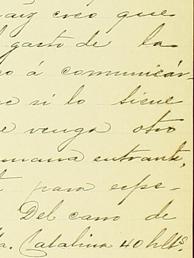 aiz creo que
l gasto de la
o á comunicár-
se si lo sigue
e venga otro
emana entrante,
t para espe-
Del carro de
ta. Catalina 40 hlts.